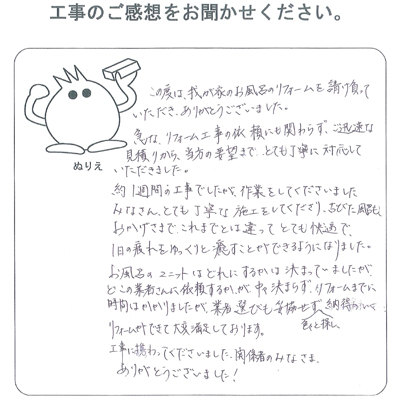 工事のご感想をお聞かせください。
この度は、我が家のお風呂のリフォームを請け負って
いただき、ありがとうございました。
急な、リフォーム工事の依頼にも関わらず、ご迅速な
見積りから、当方の要望まで、とても丁寧に対応して
いただきました。
ぬりえ
約1週間の工事でしたが、作業をしてくださいました
みなさん、とても丁寧な施工をしてくださり、
おかげさまで、これまでとは違って とても快適で、
1日の疲れをゆっくりと癒すことができるようになりました。
お風呂のユニットはどれにするかは決まっていましたが、
どこの業者さんに依頼するかが中々決まらず、リフォームまでに
時間はかかりましたが、業者選びも妥協せず 納得
色々と探し、
リフォームができて大変満足しております。
工事に携わってくださいました、関係者のみなさま、
ありがとうございました!